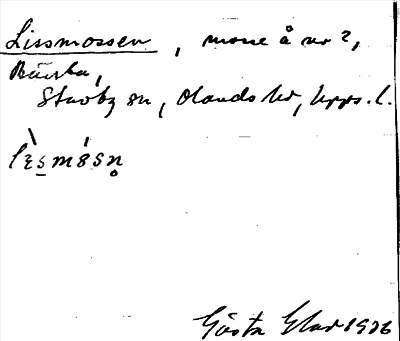 Lissmossen, mosse å nr 2,
Bärsta,
Stavby sn, Olands hd, Upps. l.
Gösta Elav 1936